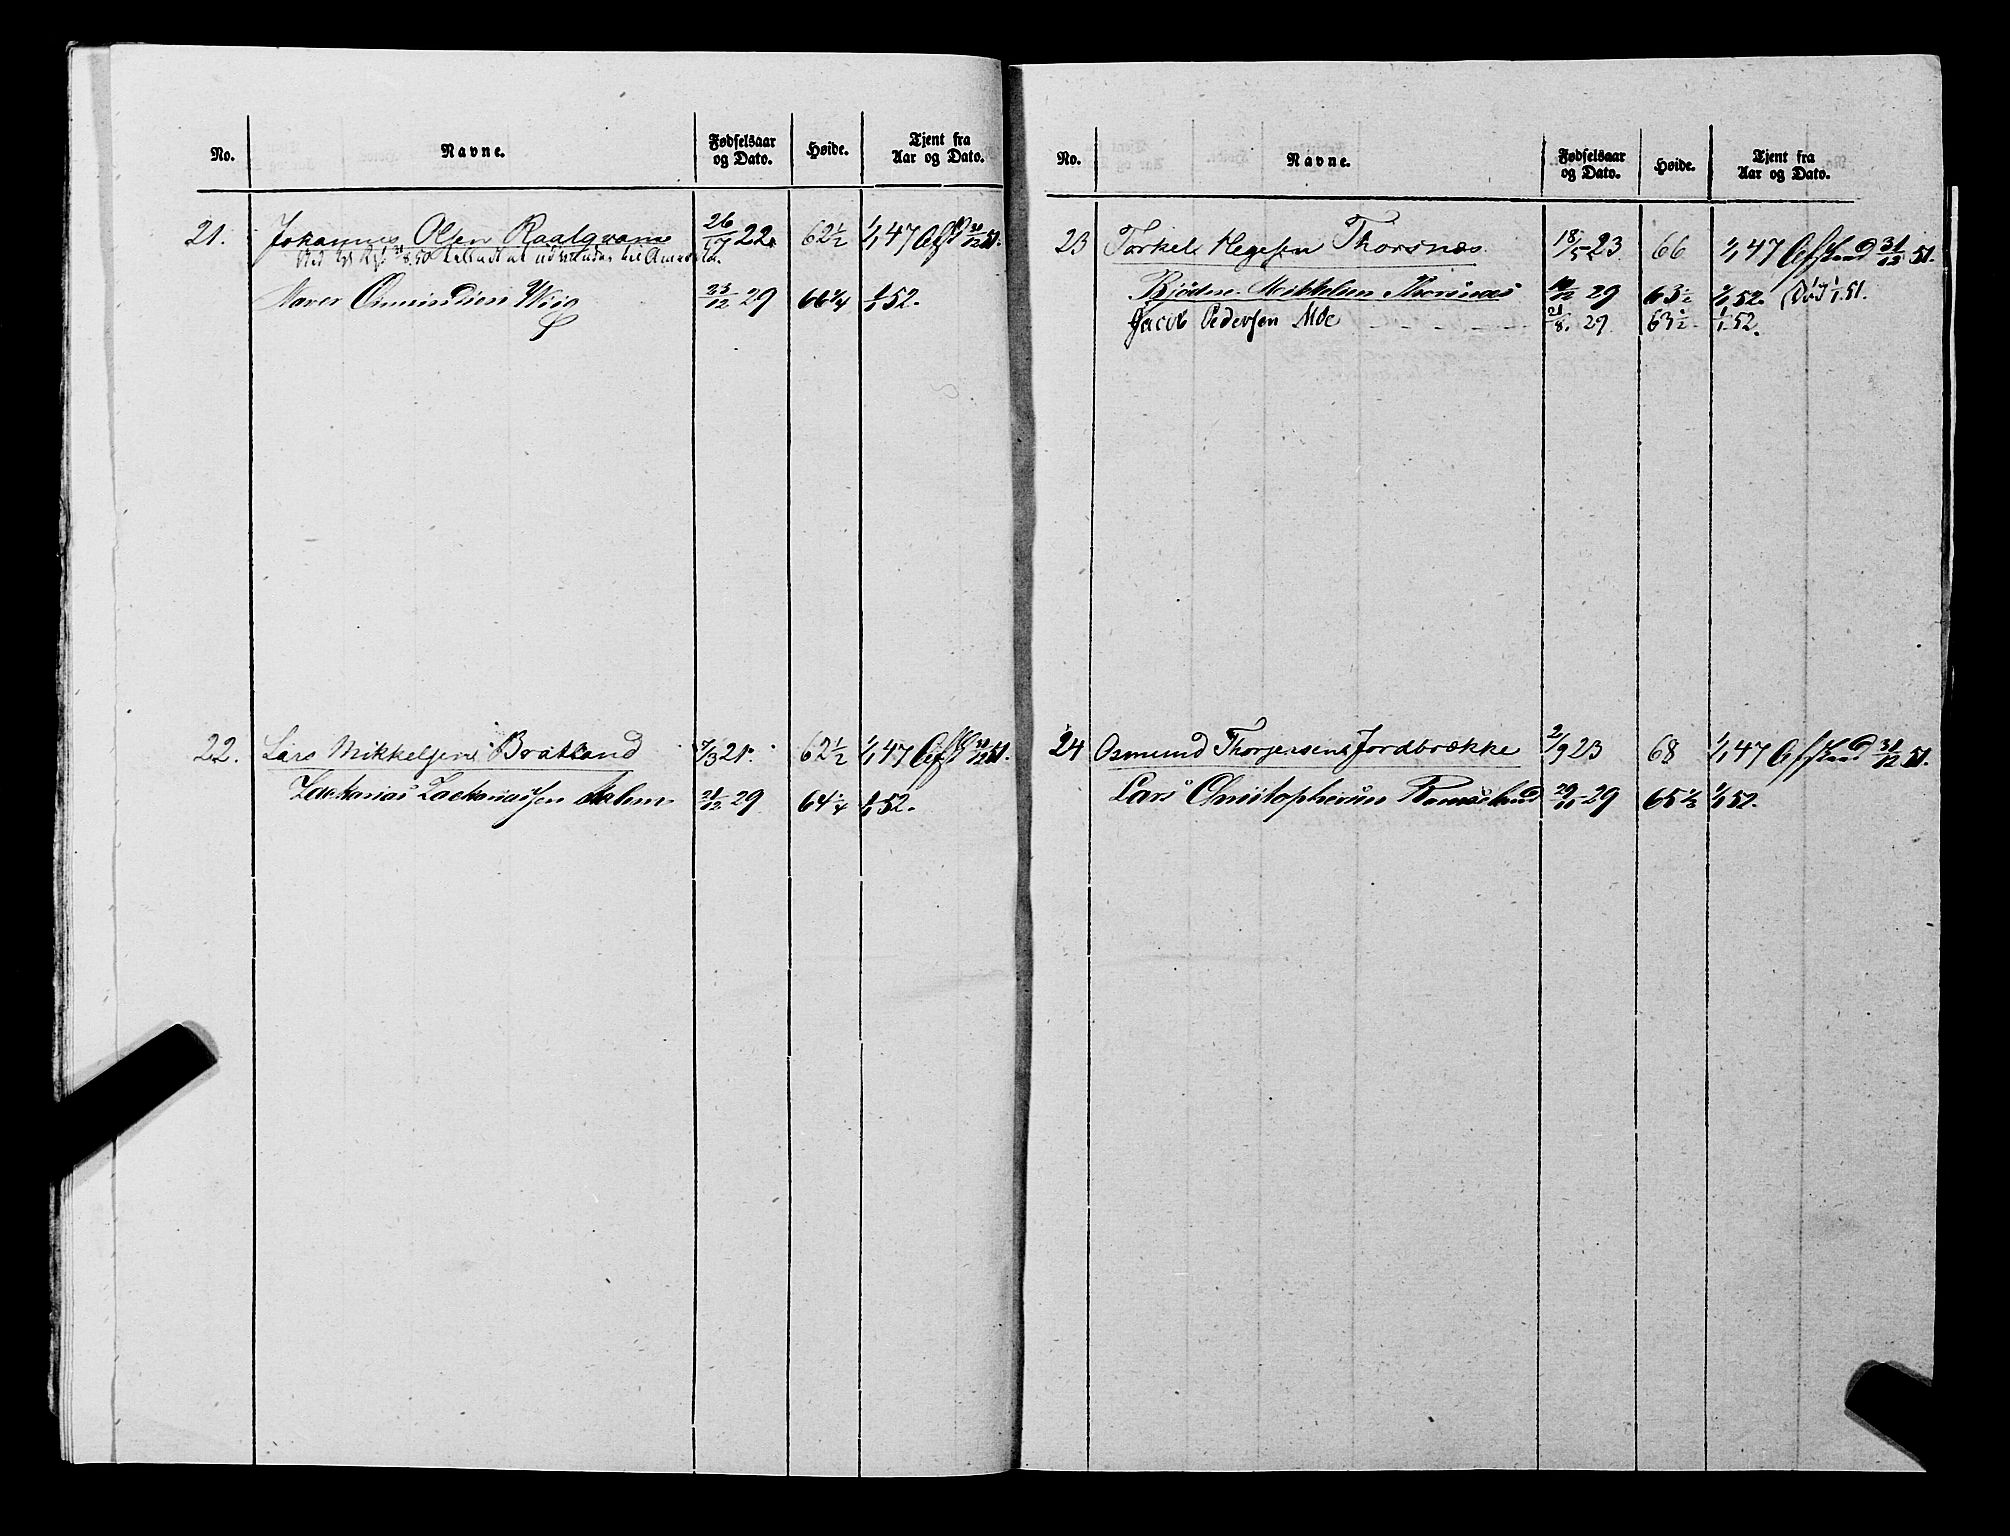 No. Navne. Fødselsaar og Dato. Høide. Tjent fra Aar og Dato.
21. Johannes Olsen Raalqvam 26/17 22. 62 1/2 1/1 47 Afsk 31/12 51.
8/50 at udvandre til Amerika.
Osmundsen 23/12 29 66 1/4 1/1 52.
22. Lars Mikkelsen Bratland 7/3 21. 62 1/2 1/1 47 Afsk 31/12 51.
Zacharias Zachariassen 21/12 29 64 1/4 1/1 52.
No. Navne. Fødselsaar og Dato. Høide. Tjent fra Aar og Dato.
23 Torkel Hegesen Thorsnæs 18/5 23 66 1/1 47 Afskeed 31/12 51.
Bjødne Mikkelsen Thorsnæs 10/12 29 63 1/2 1/1 52. Død 1/1 51.
Jacob Pedersen Moe 21/8 29 63 1/2 1/1 52.
24 Osmund Thorgersen Jordbrække 2/9 23 68 1/1 47 Afskeed 31/12 51.
Lars Christophersen 29/11 29 65 1/2 1/1 52.